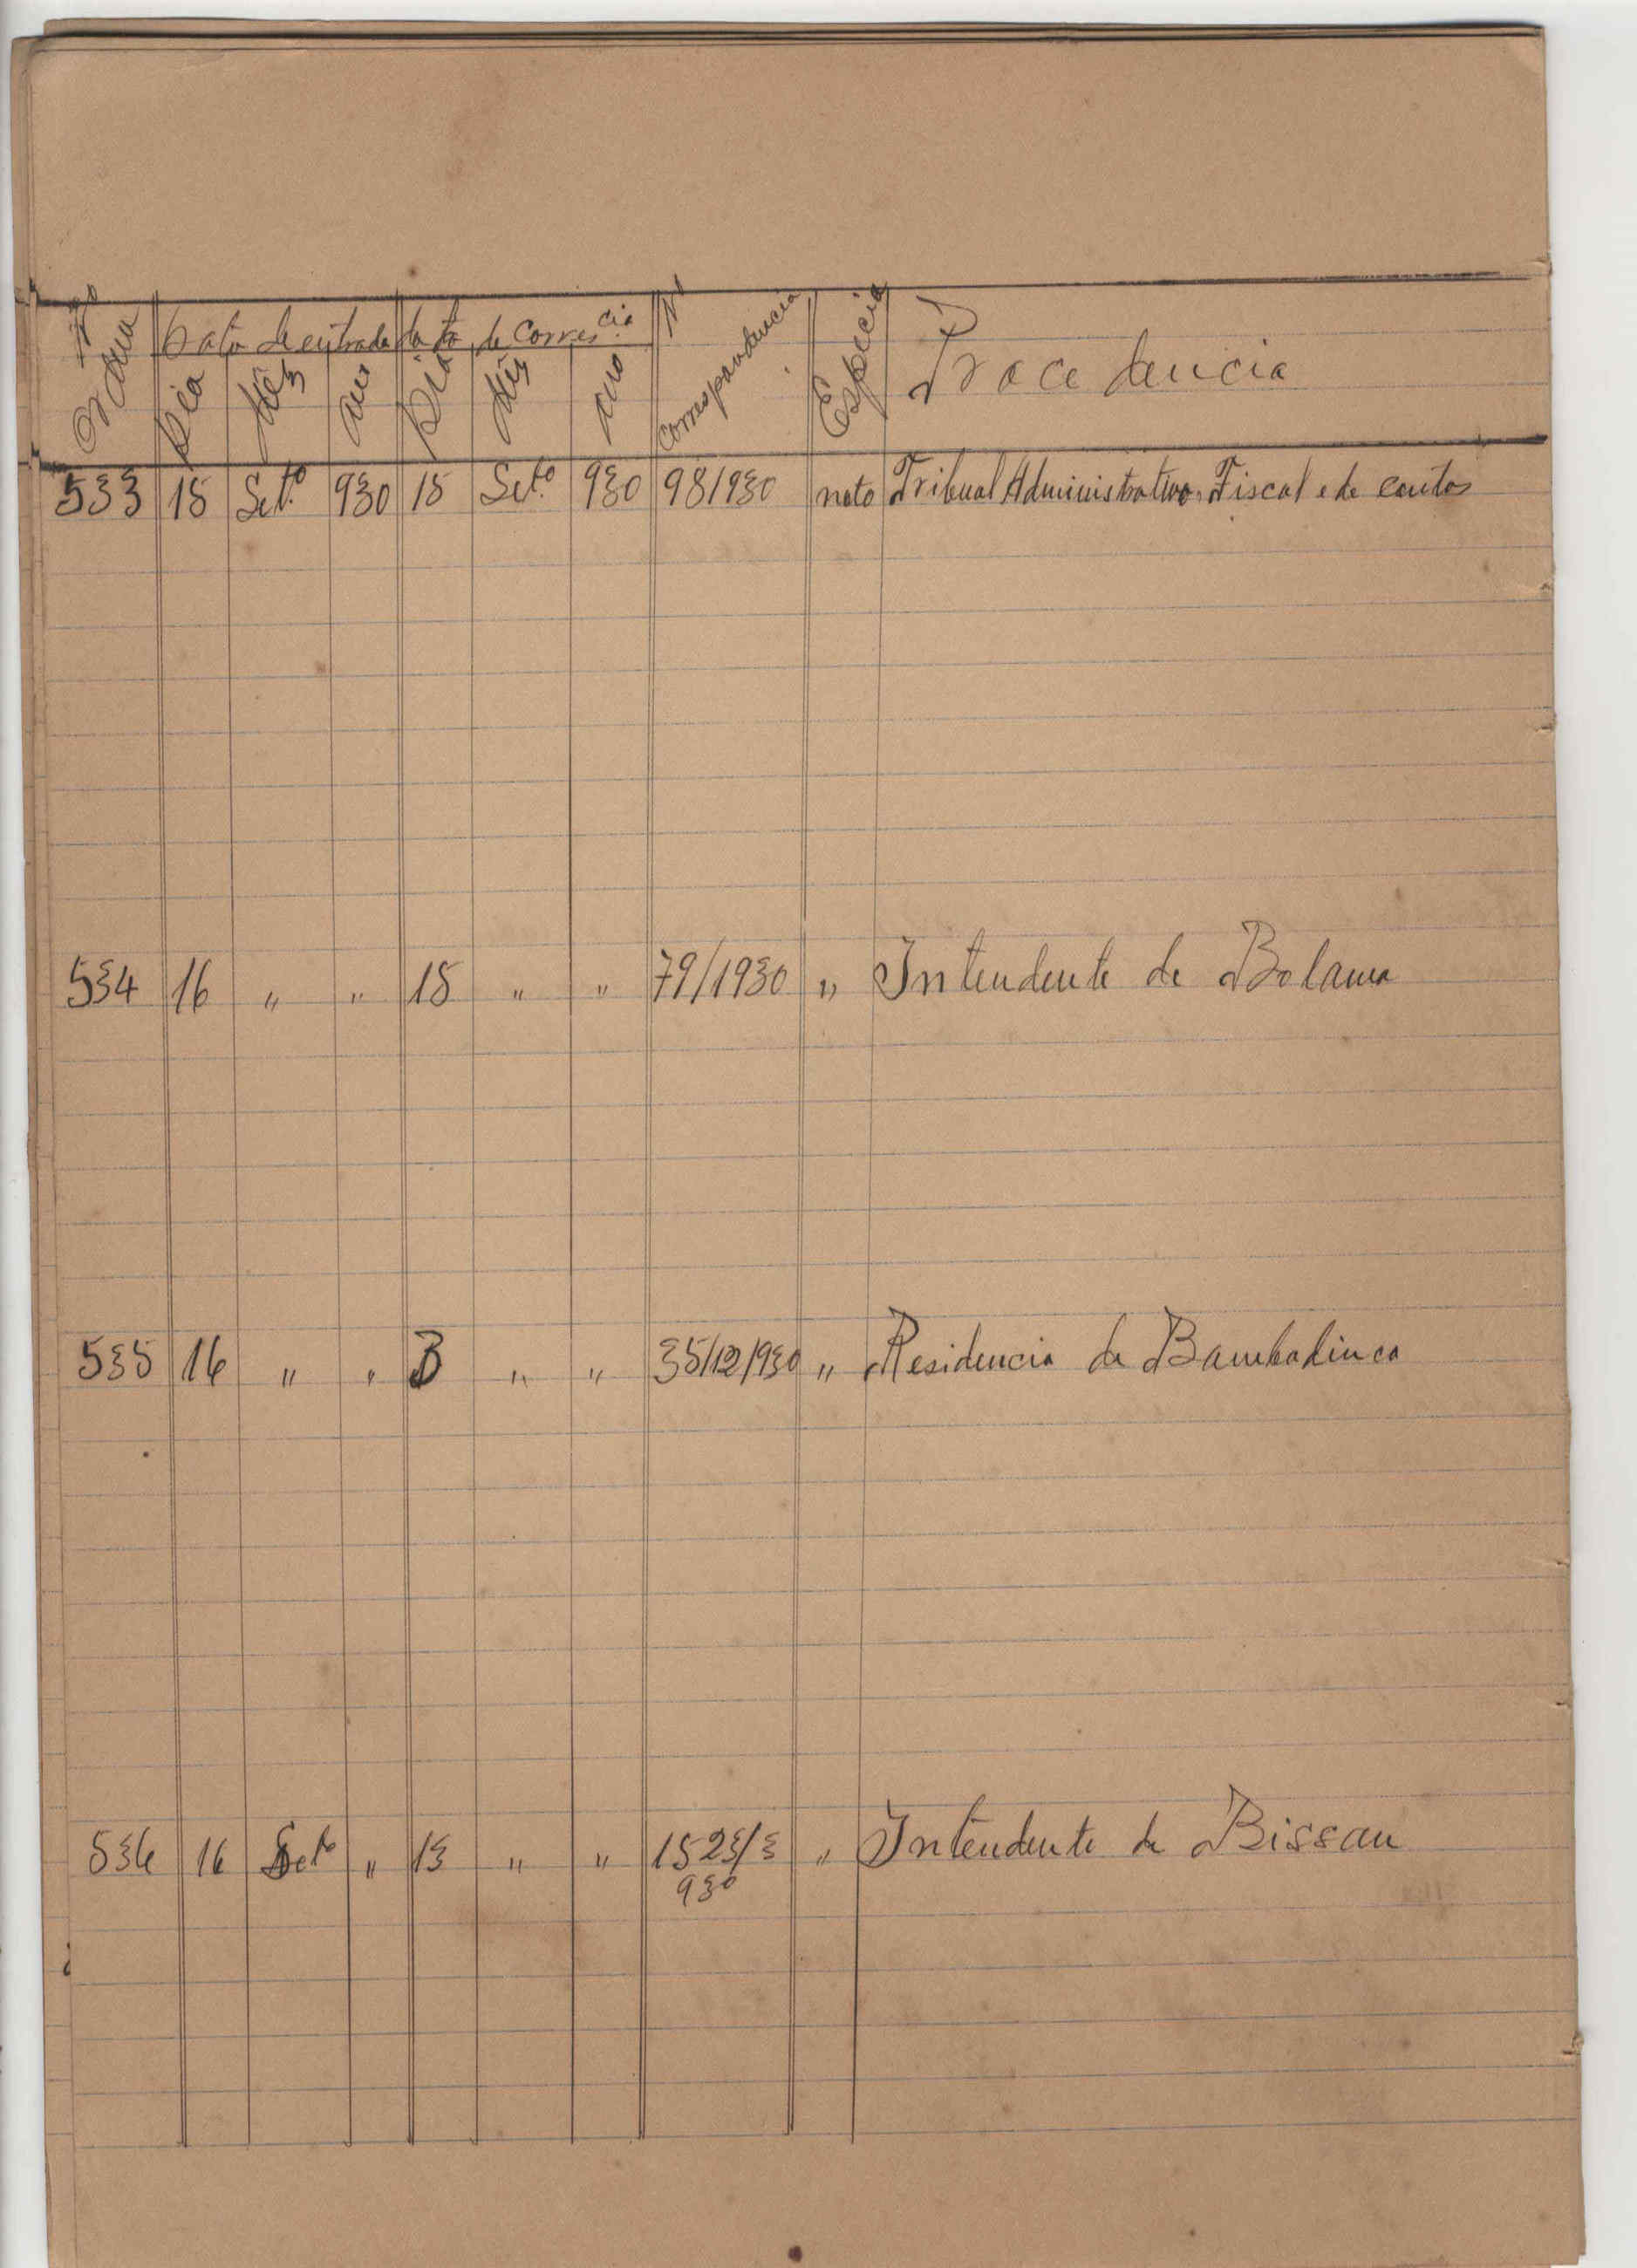 Nº Ordem Data de entrada Data de corres.cia Nº correspondencia Especie Procedencia
Dia Mês Ano Dia Mês Ano
533 15 Set.º 930 15 Set.º 930 98/930 nota Tribual Administrativo, Fiscal e de contos
534 16 " " 15 " " 79/1930 " Intendente de Bolama
535 16 " " " " 35/12/930 " Residencia de Bambadinca
536 16 Setº " 13 " " 1523/3 " Intendente de Bissau
930